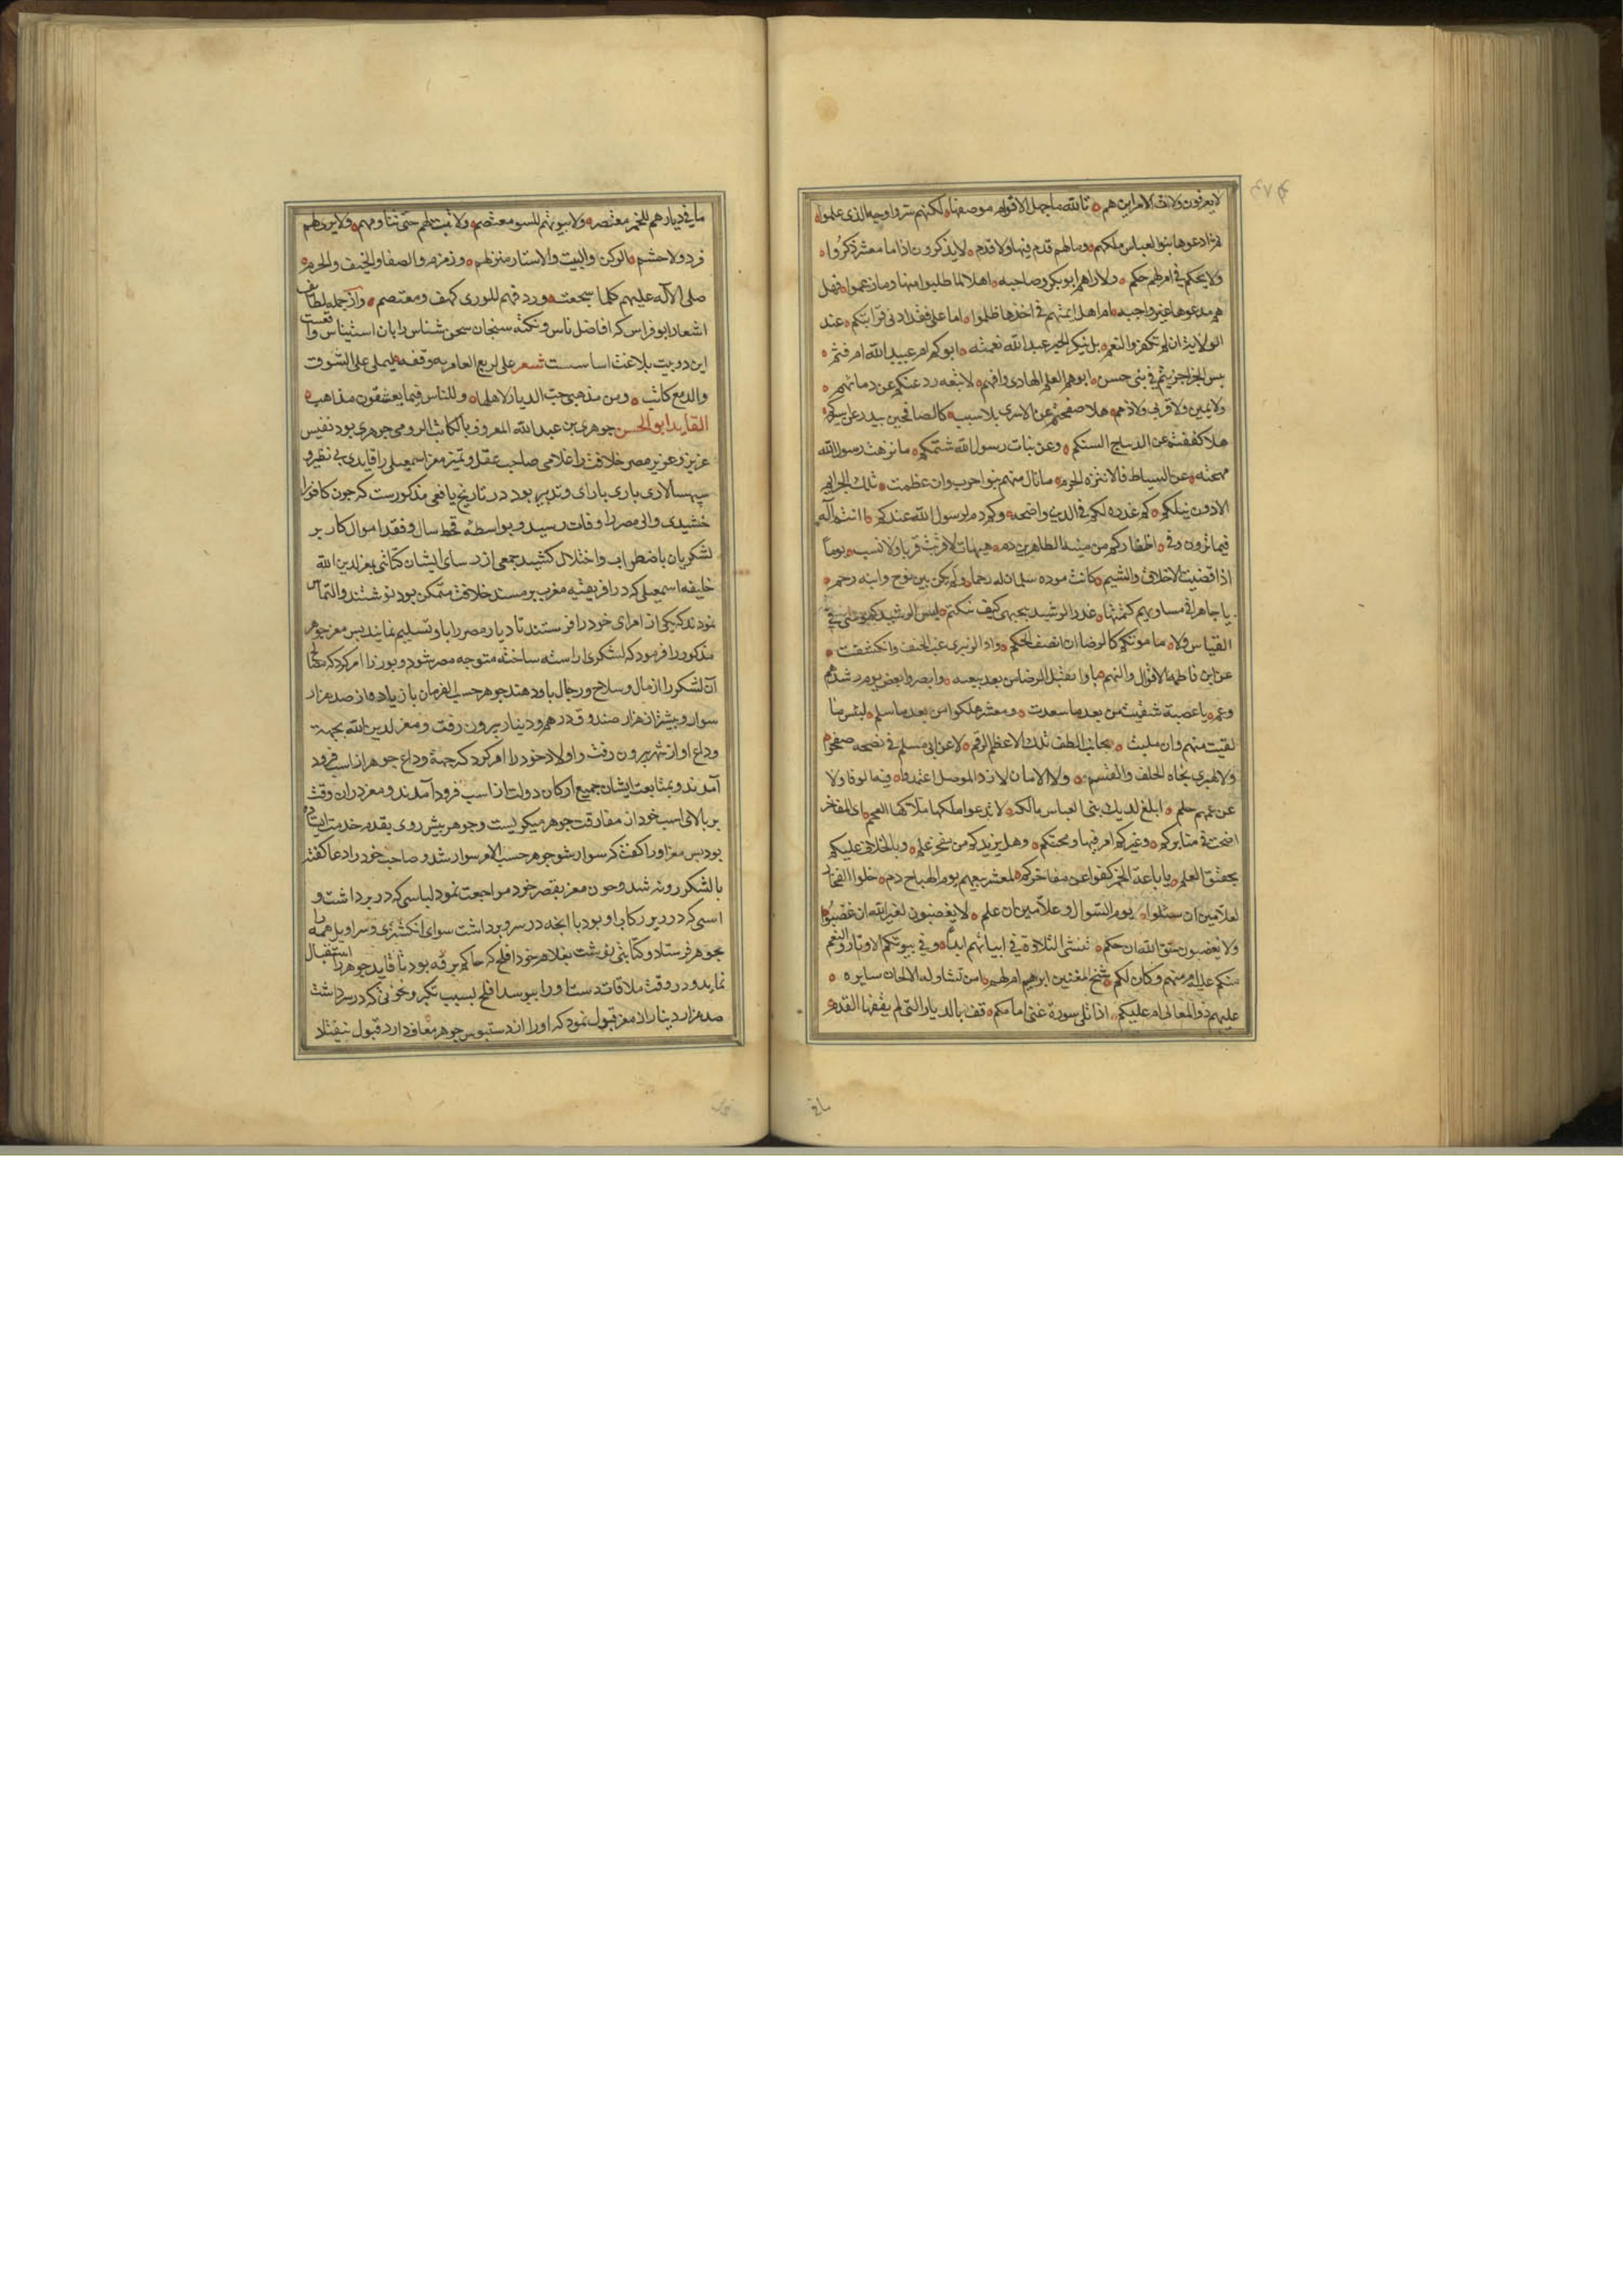 لا يعرفون ولات الامر اين هم تالله ما جهل الاقوام موضعها لكنهم ستروا وجه الذی علموا
ثم ادعوها بنو العباس ملكهم وما لهم قدم فيها ولا قدم لا يذكرون اذا ما معشر ذكروا
ولا يحكم فی امر لهم حكم ولا راهم ابو بكر وصاحبه اهلا لما طلبوا منها وما زعموا فهل
هم مدعوها غير واجبه ام هل ائمتهم فی اخذها ظلموا اما علی فقد ادنی قرابتكم عند
الولاية ان لم تكفر النعم بل ينكر الحبر عبد الله نعمته ابوكم ام عبيد الله ام قثم
بئس الجزا جزيتم فی بنی حسن ابوهم العلم الهادی وامهم لا بيعه ردعتكم عن دمائهم
ولا يمين ولا قربی ولا ذمم هلا صفحتم عن الاسری بلا سبب كالصافحين ببدر عن اسيركم
هلا كففتم عن الديباج السنكم وعن بنات رسول الله شتمكم ما نزهت لرسول الله
مهجته عن السياط فالا نزه الحرم ما نال منهم بنو احرب وان عظمت تلك الجرايم
الا دون نيلكم كم غدره لكم فی الدين واضحه وكم دم لرسول الله عندكم اانتم آله
فيما ترون وفی اظفاركم من بنيه الطاهرين دم هيهات لا قربت قربا ولا نسب يوما
اذا قضيت الاخلاق والشيم كانت موده سلمان له رحما ولم يكن بين نوح وابنه رحم
يا جاهرا فی مساويهم كتمتها غدر الرشيد بيحيی كيف ينكتم ليس الرشيد كموسی فی
القياس ولا مامونكم كالرضا ان انصف الحكم ذاق الزبيری غب الحنث وانكشفت
عن ابن فاطمه الاقوال والتهم باوا بقتل الرضا من بعد بيعته وابصروا بعض يوم رشدهم
وعموا يا عصبة شقيت من بعد ما سعدت ومعشر هلكوا من بعد ما سلموا لبئس ما
لقيت منهم وان بليت بجانب الطف تلك الاعظم الرمم لا عن ابی مسلم فی نصحه صفحوا
ولا الهبيری نجاه الحلف والقسم ولا الامان لازد الموصل اعتمدوا فيه الوفا ولا
عن عمهم حلم ابلغ لديك بنی العباس مالكه لا تدعوا ملكها ملاكها العجم ای المفاخر
اضحت فی منابركم وغيركم امر فيها ومحتكم وهل يزيدكم من مفخر علم وبالخلاف عليكم
يخفق العلم يا باعة الخمر كفوا عن مفاخركم لمعشر بيعهم يوم الهياج دم خلوا الفخار
لعلامين ان سئلوا يوم السؤال وعلامين ان علم لا يغضبون لغير الله ان غضبوا
ولا يضيعون حق الله ان حكم تنشی التلاوة فی ابياتهم ابدا وفی بيوتكم الاوتار والنغم
منكم عليه ام منهم وكان لكم شيخ المغنين ابرهيم ام لهم امن تشاد له الالحان سايره
عليهم ذو المعالی ام عليكم اذا تلی سورة غنی امامكم قف بالديار التی لم يعفها القدم
ما فی ديارهم للخمر معتصر ولا بيوتهم للسوء معتصم ولا تبيت لهم خنثی تنادمهم ولا يری لهم
قرد ولا حشم الركن والبيت والاستار منزلهم وزمزم والصفا والخيف والحرم
صلی الاله عليهم كلما سجعت ورق فهم للوری كهف ومعتصم وازجمله لطائف
اشعار ابوفراس كه افاضل ناس ونكته سنجان سخن شناس را بان استيناس واقعست
اين دو بيت بلاغت اساسست شعر علی لربع العامريه وقفه ليملی علی الشوق
والدمع كاتب ومن مذهبی حب الديار لاهلها وللناس فيما يعشقون مذاهب
القايد ابو الحسن جوهر بن عبد الله المعروف بالكاتب الرومی جوهری بود نفيس
عزيز وعزيز مصر خلافت را غلامی صاحب عقل وتميز معز اسمعيلی را قايدی بی نظير و
سپهسالاری باری بارای وتدبير بود در تاريخ يافعی مذكورست كه چون كافور
خشيدی والی مصر را وفات رسيد وبواسطه قحط سال وفقد اموال كار بر
لشكريان باضطراب واختلال كشيد جمعی از رؤسای ايشان كتابتی بمعز لدين الله
خليفه اسمعيلی كه در افريقيه مغرب بر مسند خلافت متمكن بود نوشتند والتماس
نمودند كه يكی از امرای خود را فرستند تا ديار مصر را باو تسليم نمايند پس معز جوهر
مذكور را فرمود كه لشكری اراسته ساخته متوجه مصر شود و وزرا را امر كرد كه مايحتاج
آن لشكر را از مال وسلاح ورجال باو دهند جوهر حسب الفرمان با زياده از صد هزار
سوار وبيشتر از هزار صندوق درهم ودينار بيرون رفت ومعز لدين الله بجهة
وداع او از شهر بيرون رفت واولاد خود را امر كرد كه جهة وداع جوهر از اسب فرود
آمدند وبمتابعت ايشان جميع اركان دولت از اسب فرود آمدند ومعز دران وقت
بر بالای اسب خود از مفارقت جوهر ميگريست وجوهر پيش روی بقدم خدمت ايستاده
بود پس معز اورا گفت كه سوار شو جوهر حسب الامر سوار شد و صاحب خود را دعا گفته
با لشكر روانه شد وچون معز بقصر خود مراجعت نمود لباسی كه در بر داشت و
اسبی كه در زير ركاب او بود با انچه در سر وبر داشت سوای انگشتری وسراويل همه را
بجوهر فرستاد وكتابتی نوشت بغلام خود افلح كه حاكم برقه بود تا قايد جوهر را استقبال
نمايد ودر وقت ملاقات دست او را ببوسد افلح بسبب تكبر ونخوتی كه در سر داشت
صد هزار دينار از معز قبول نمود كه او را از دستبوس جوهر معاف دارد قبول نيفتاد